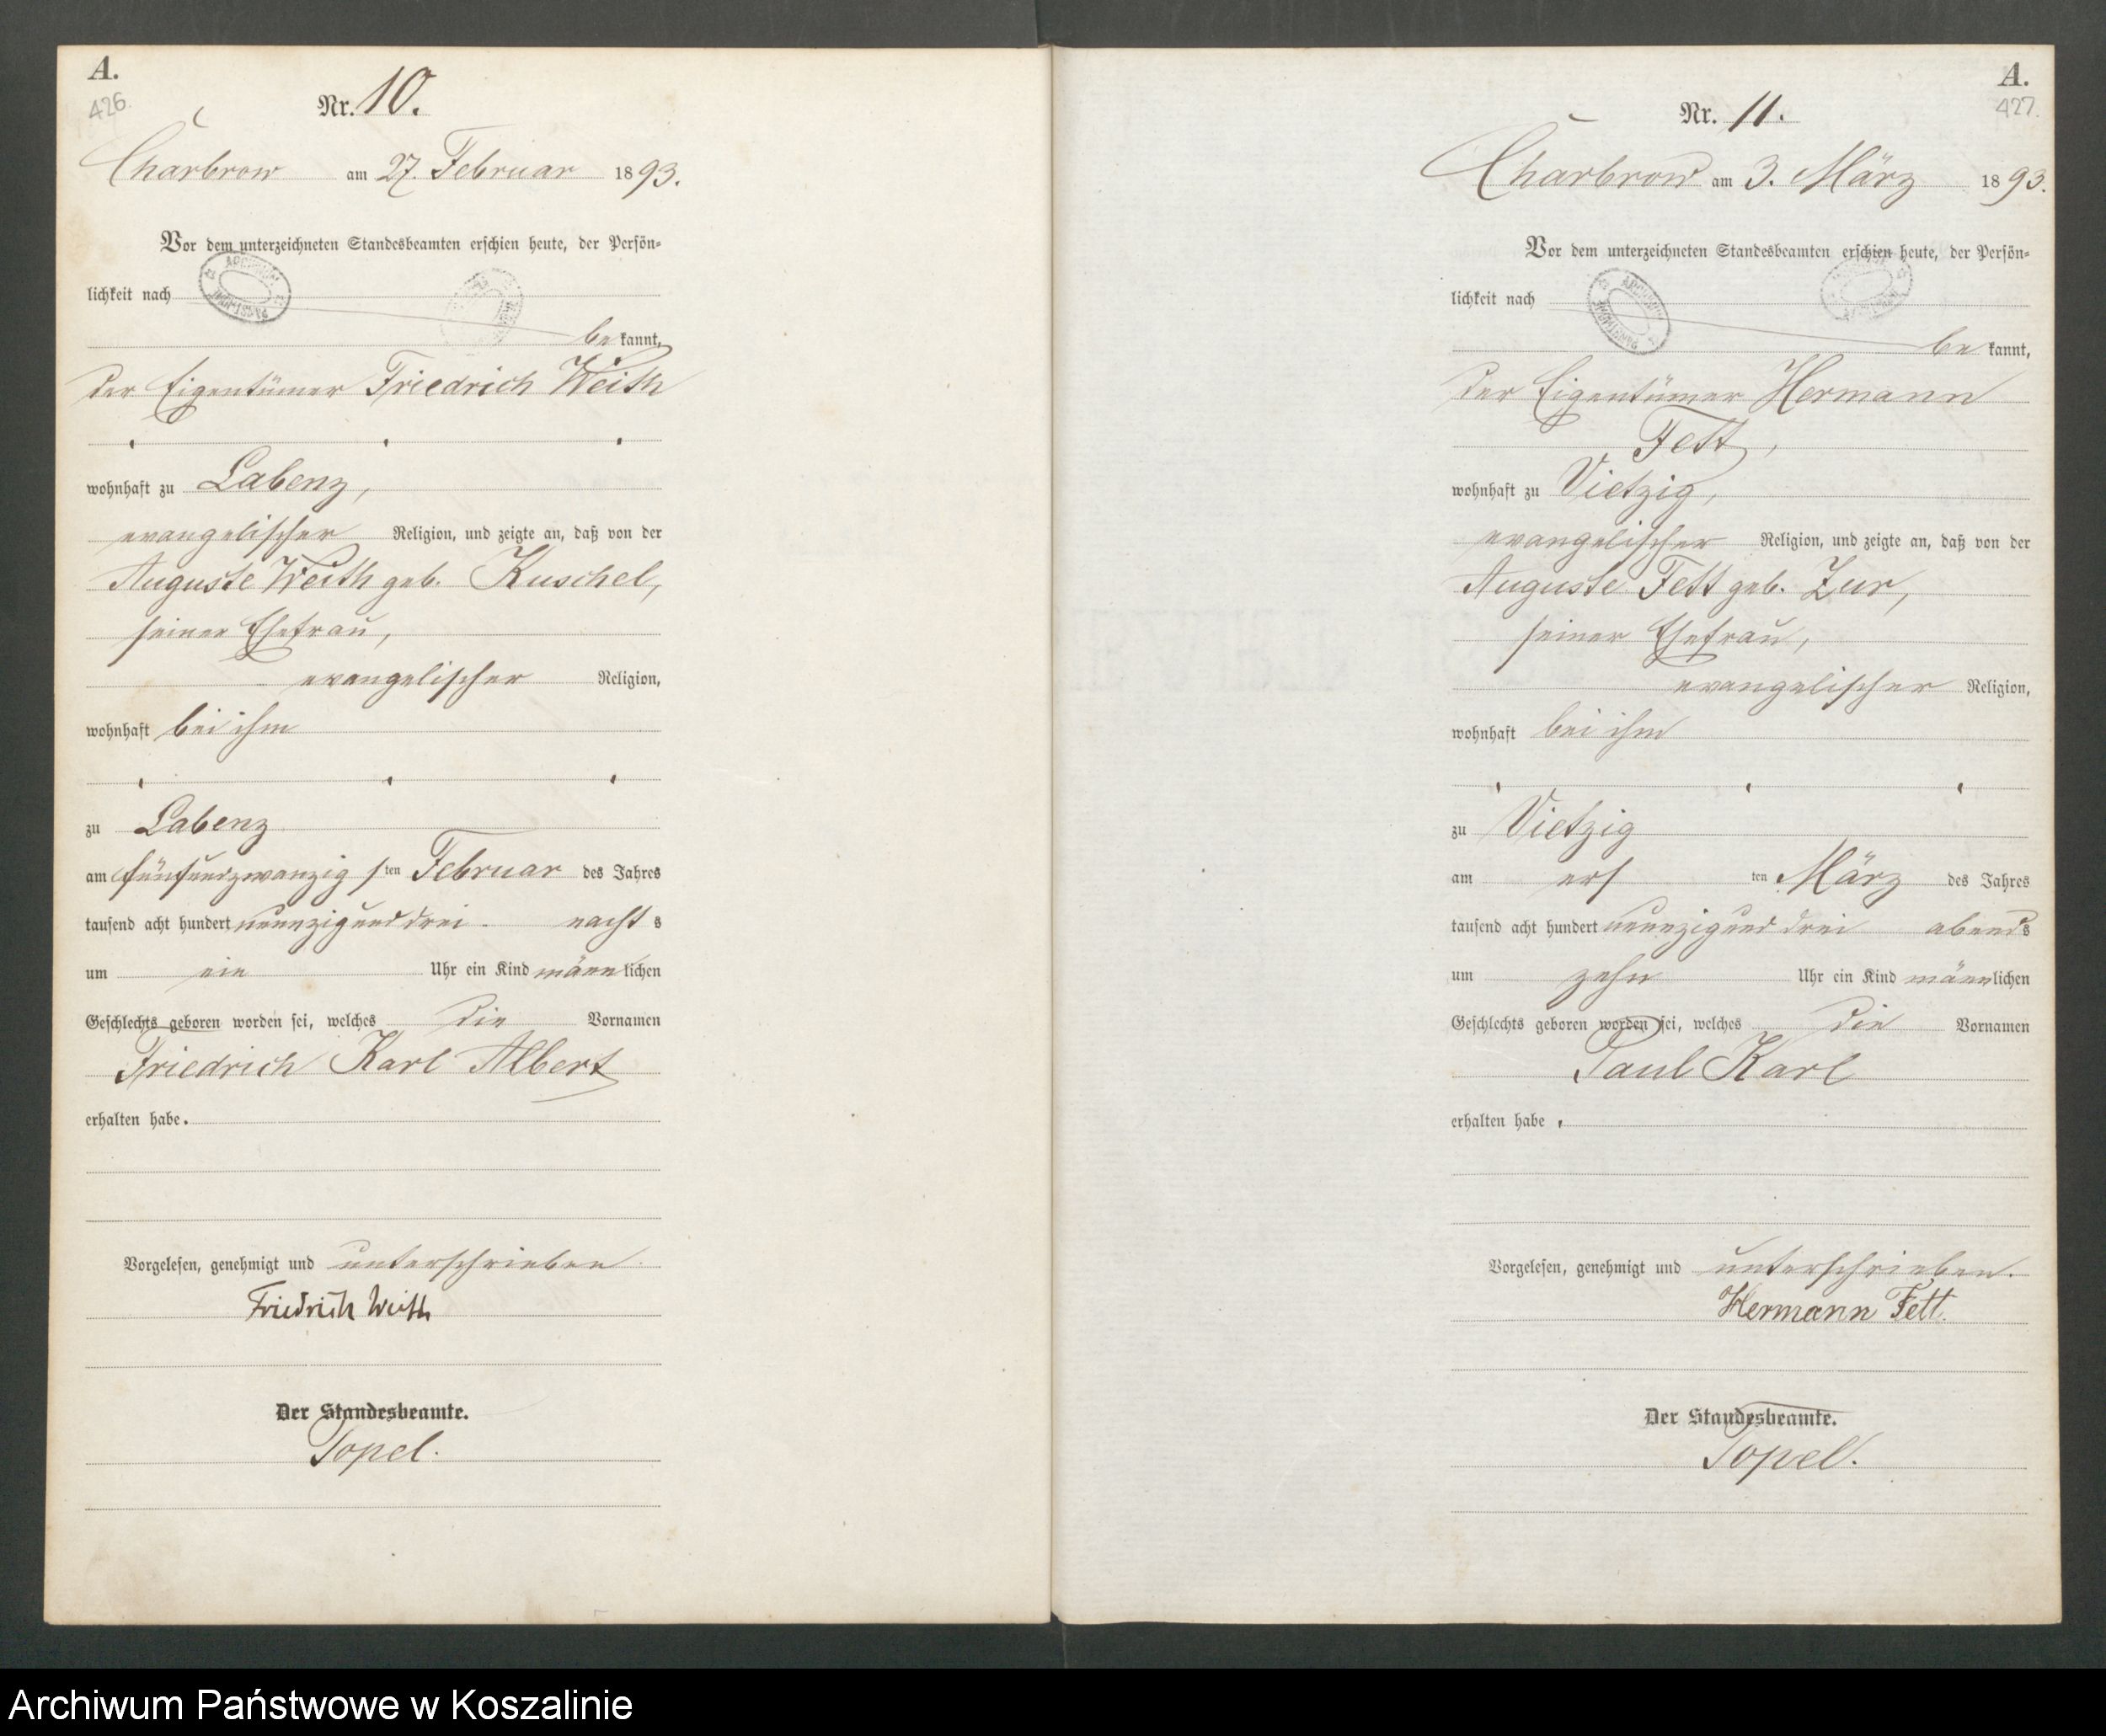 A.
426.
Nr. 10.
Charbrow am 27. Februar 1893.
Vor dem unterzeichneten Standesbeamten erschien heute, der Persön-
lichkeit nach
bekannt,
der Eigentümer Friedrich Weith
wohnhaft zu Labenz,
evangelischer Religion, und zeigte an, daß von der
Auguste Weith geb. Kuschel,
seiner Ehefrau,
evangelischer Religion,
wohnhaft bei ihm
zu Labenz
am fünfundzwanzigsten Februar des Jahres
tausend acht hundert neunzig und drei nachts
um ein Uhr ein Kind männlichen
Geschlechts geboren worden sei, welches die Vornamen
Friedrich Karl Albert
erhalten habe.
Vorgelesen, genehmigt und unterschrieben.
Friedrich Weith
Der Standesbeamte.
Topel.
A.
427.
Nr. 11.
Charbrow am 3. März 1893.
Vor dem unterzeichneten Standesbeamten erschien heute, der Persön-
lichkeit nach
bekannt,
der Eigentümer Hermann
Fett,
wohnhaft zu Vietzig,
evangelischer Religion, und zeigte an, daß von der
Auguste Fett geb. Zur,
seiner Ehefrau,
evangelischer Religion,
wohnhaft bei ihm
zu Vietzig
am ersten März des Jahres
tausend acht hundert neunzig und drei abends
um zehn Uhr ein Kind männlichen
Geschlechts geboren worden sei, welches die Vornamen
Paul Karl
erhalten habe.
Vorgelesen, genehmigt und unterschrieben.
Hermann Fett.
Der Standesbeamte.
Topel.
Archiwum Państwowe w Koszalinie